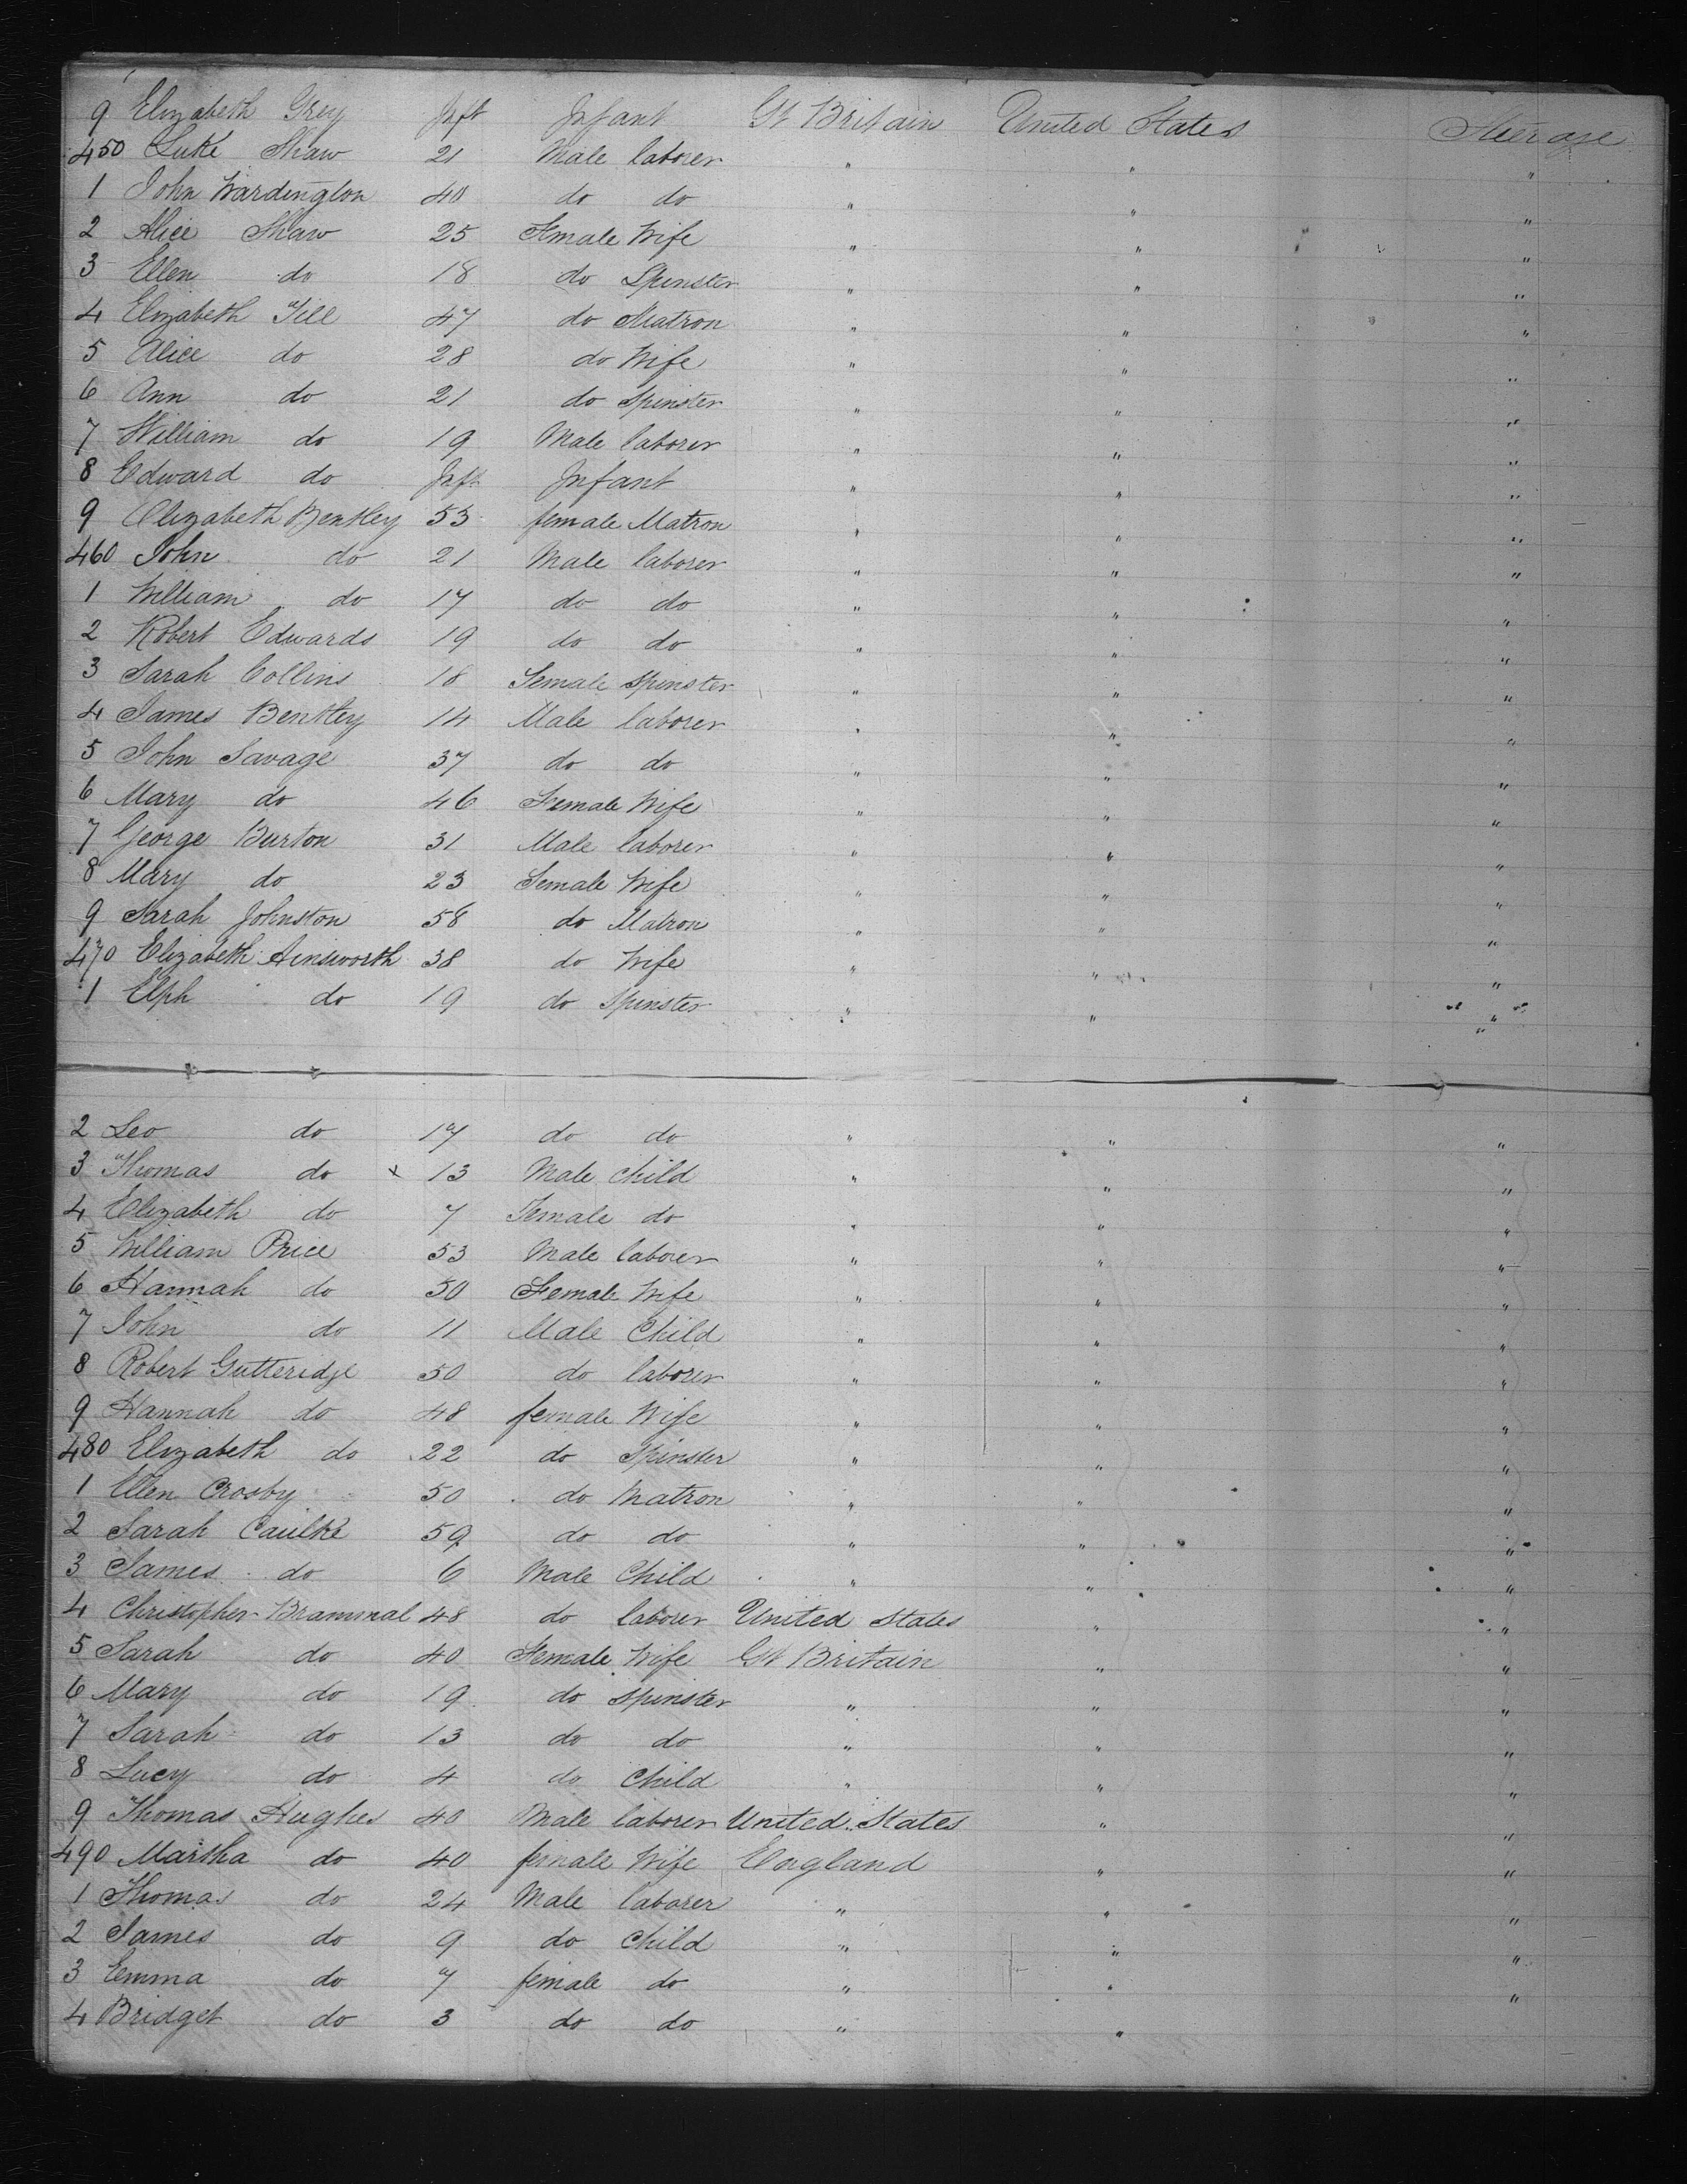 9 Elizabeth Grey Inft Infant Gt Britain United States Steerage
450 Luke Shaw 21 Male laborer " " "
1 John Wardington 40 do do " " "
2 Alice Shaw 25 Female Wife " " "
3 Ellen do 18 do Spinster " " "
4 Elizabeth Till 47 do Matron " " "
5 Alice do 28 do Wife " " "
6 Ann do 21 do Spinster " " "
7 William do 19 Male laborer " " "
8 Edward do Inft Infant " " "
9 Elizabeth Bentley 53 female Matron " " "
460 John do 21 Male laborer " " "
1 William do 17 do do " " "
2 Robert Edwards 19 do do " " "
3 Sarah Collins 18 Female Spinster " " "
4 James Bentley 14 Male laborer " " "
5 John Savage 37 do do " " "
6 Mary do 46 Female Wife " " "
7 George Burton 31 Male laborer " " "
8 Mary do 23 Female Wife " " "
9 Sarah Johnston 58 do Matron " " "
470 Elizabeth Ainsworth 38 do Wife " " "
1 Elph do 19 do Spinster " " "
2 Leo do 17 do do " " "
3 Thomas do x 13 Male child " " "
4 Elizabeth do 7 Female do " " "
5 William Price 53 Male laborer " " "
6 Hannah do 50 Female Wife " " "
7 John do 11 Male Child " " "
8 Robert Gutteridge 50 do laborer " " "
9 Hannah do 48 female Wife " " "
480 Elizabeth do 22 do Spinster " " "
1 Ellen Crosby 50 do Matron " " "
2 Sarah 59 do do " " "
3 James do 6 Male Child " " "
4 Christopher Brammal 48 do laborer United States " "
5 Sarah do 40 Female Wife Gt Britain " "
6 Mary do 19 do Spinster " " "
7 Sarah do 13 do do " " "
8 Lucy do 4 do Child " " "
9 Thomas Hughes 40 Male laborer United States " "
490 Martha do 40 female Wife England " "
1 Thomas do 24 Male laborer " " "
2 James do 9 do Child " " "
3 Emma do 7 female do " " "
4 Bridget do 3 do do " "